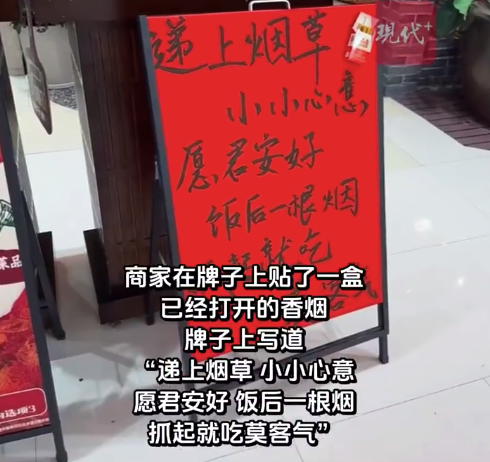 递上烟草
小小心意
愿君安好
饭后一根烟
就吃
現代+
商家在牌子上贴了一盒
已经打开的香烟
牌子上写道
“递上烟草 小小心意
愿君安好 饭后一根烟
抓起就吃莫客气”